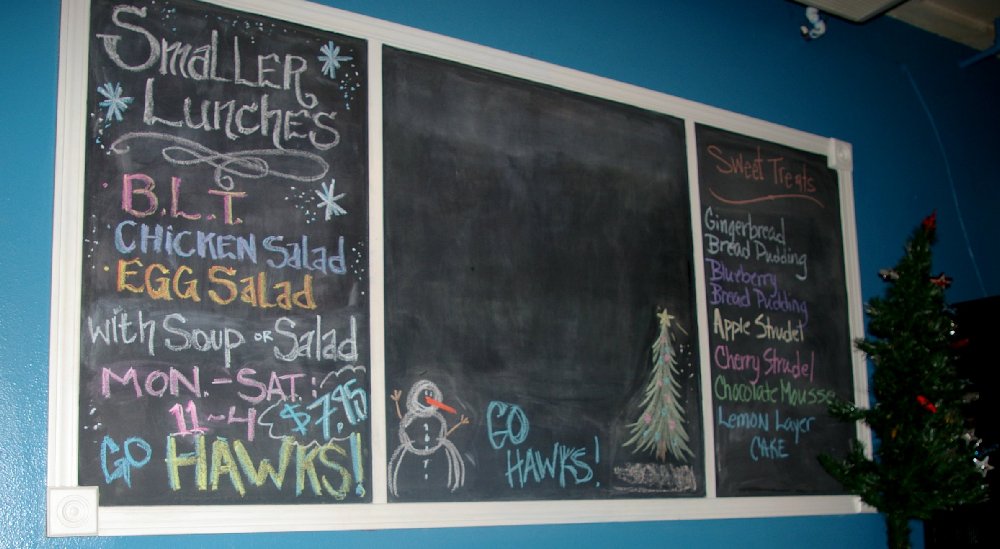 Smaller
Lunches
B.L.T.
Chicken Salad
Egg Salad
with Soup or Salad
Mon.-Sat.:
11-4 $7.95
Go Hawks!
Go
Hawks!
Sweet Treats
Gingerbread
Bread Pudding
Blueberry
Bread Pudding
Apple Strudel
Cherry Strudel
Chocolate Mousse
Lemon Layer
Cake